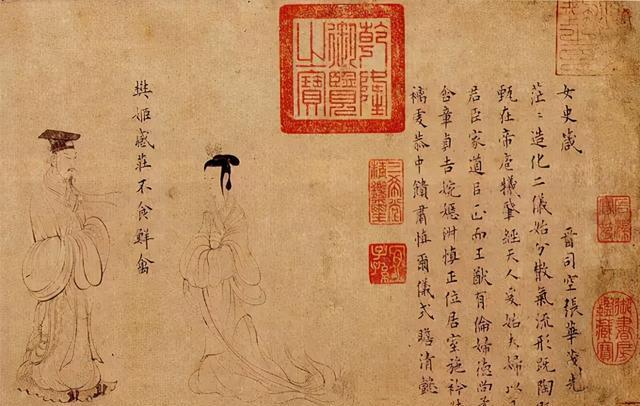 女史箴　晉司空張華茂先
茫〻造化二儀始分散氣流形既陶
甄在帝庖犧肇經天人爰始夫婦以
君臣家道以正而王猷有倫婦德尚
含章貞吉婉嫕淑慎正位居室施衿
褵虔恭中饋肅慎爾儀式瞻清懿
樊姬感莊不食鮮禽
乾隆御覽之寶
三希堂精鑑璽
宜子孫
御書房鑑藏寶